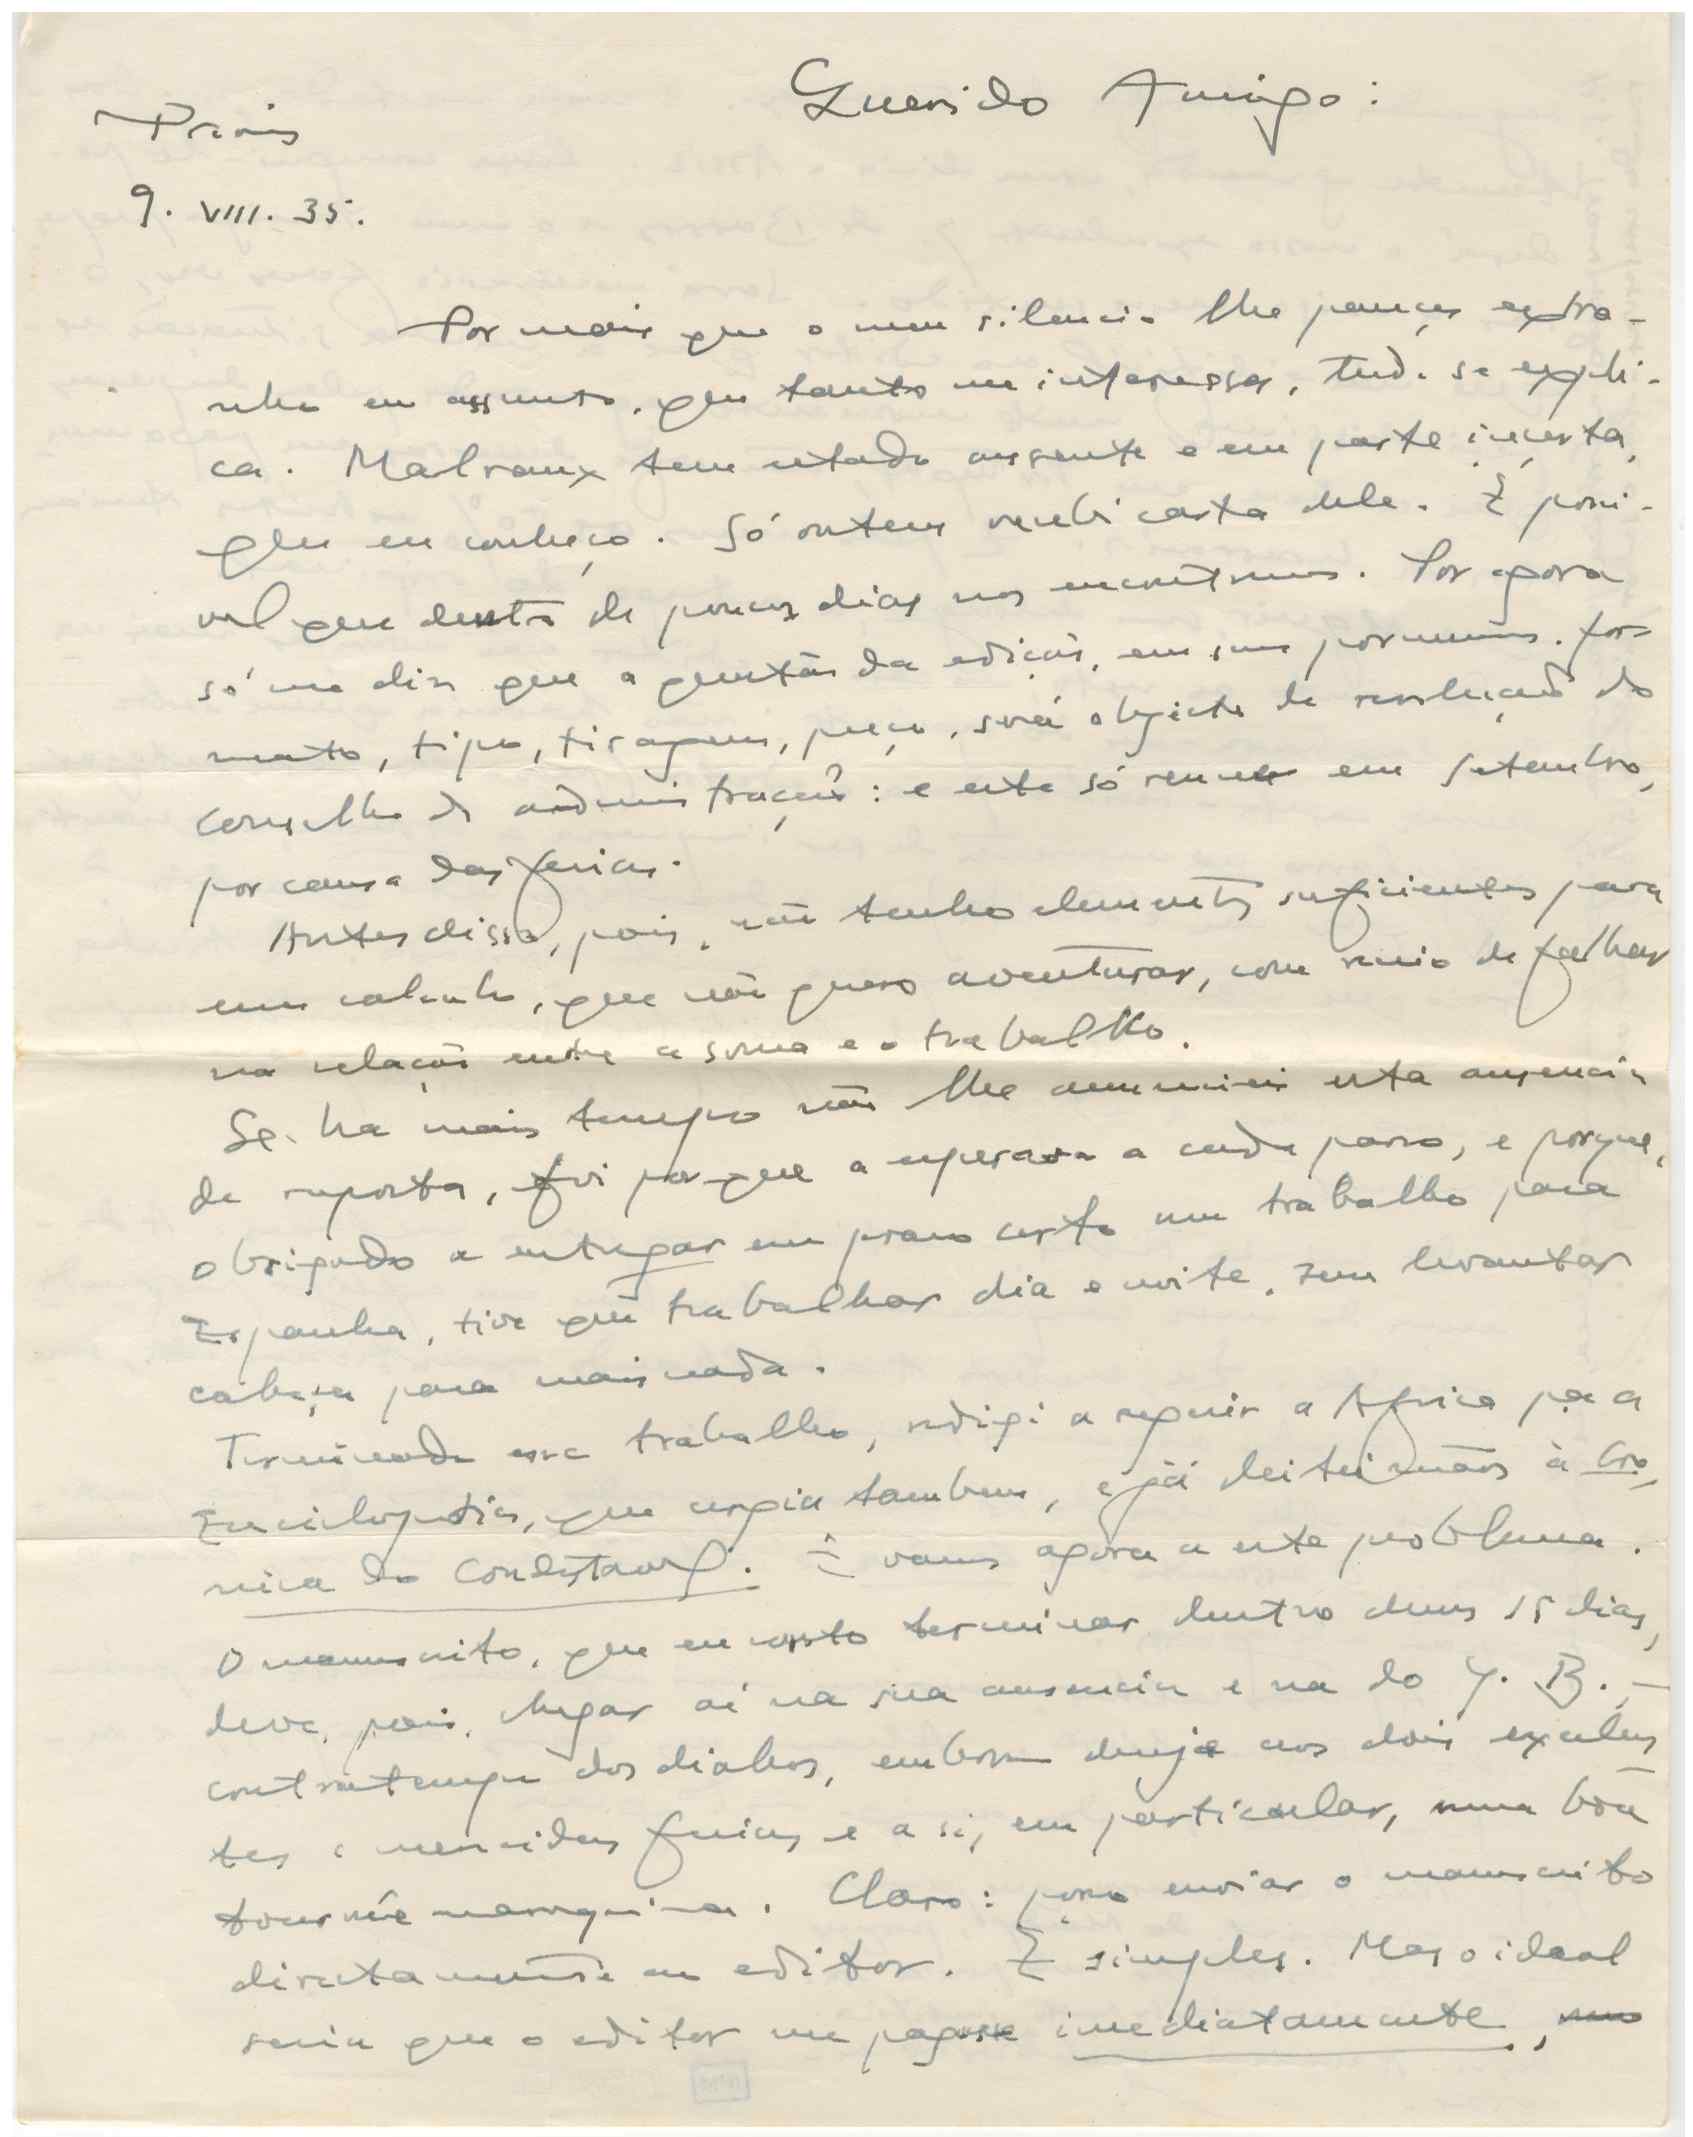 Querido Amigo:
Paris
9. VIII. 35.
Por mais que o meu silencio lhe pareça extra-
nho em assunto, que tanto me interessa, tudo se expli-
ca. Malraux tem estado ausente e em parte incerta,
que eu conheço. Só ontem recebi carta dele. É possi-
vel que dentro de poucos dias nos encontremos. Por agora
só me diz que a questão da edição, em seus pormenores, for-
mato, tipo, tiragem, preço, será objecto de resolução do
conselho de administração: e este só reune em setembro,
por causa das ferias.
Antes disso, pois, não tenho elementos suficientes para
um calculo, que não quero aventurar, com receio de falhar
na relação entre a soma e o trabalho.
Se ha mais tempo não lhe anunciei esta ausencia
de resposta, foi porque a esperava a cada passo, e porque,
obrigado a entregar em prazo certo um trabalho para
Espanha, tive que trabalhar dia e noite, sem levantar
cabeça para mais nada.
Terminado esse trabalho, redigi a seguir a Africa para a
Enciclopedia, que urgia tambem, e já deitei mãos à Cro-
nica do Condestavel. E vamos agora a este problema.
O manuscrito, que eu conto terminar dentro duns 15 dias,
deve, pois, chegar aí na sua ausencia e na do J. B., –
contratempo dos diabos, embora deseje aos dois excelen-
tes e merecidas ferias e a si, em particular, uma bôa
tournée marroquina. Claro: posso enviar o manuscrito
directamente ao editor. É simples. Mas o ideal
seria que o editor me pagasse imediatamente,